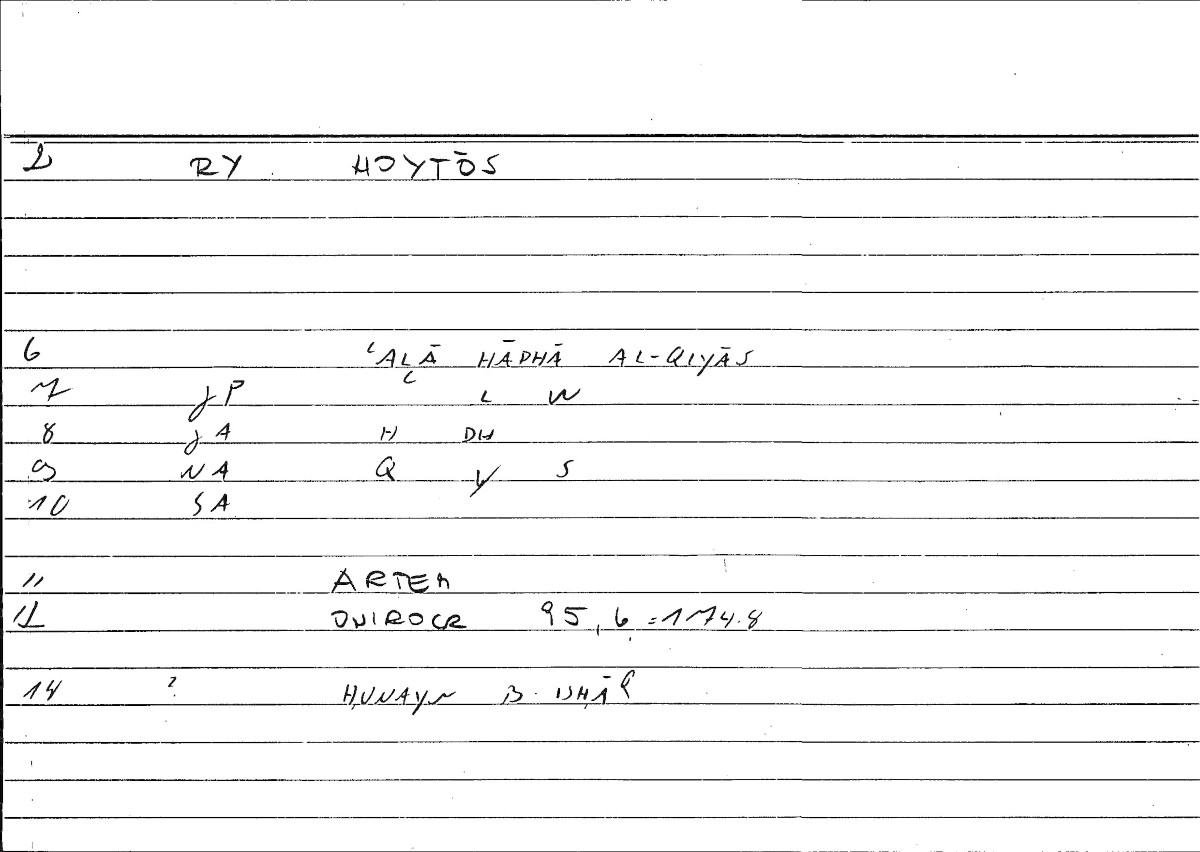 2 RY HOYTŌS
6 ʿALĀ HĀDHĀ AL-QIYĀS
7 JP ʿ L W
8 JA H DH
9 NA Q Y S
10 SA
11 ARTEM
12 ONIROCR 95,6=174.8
14 ? ḤUNAYN B. ISḤĀQ